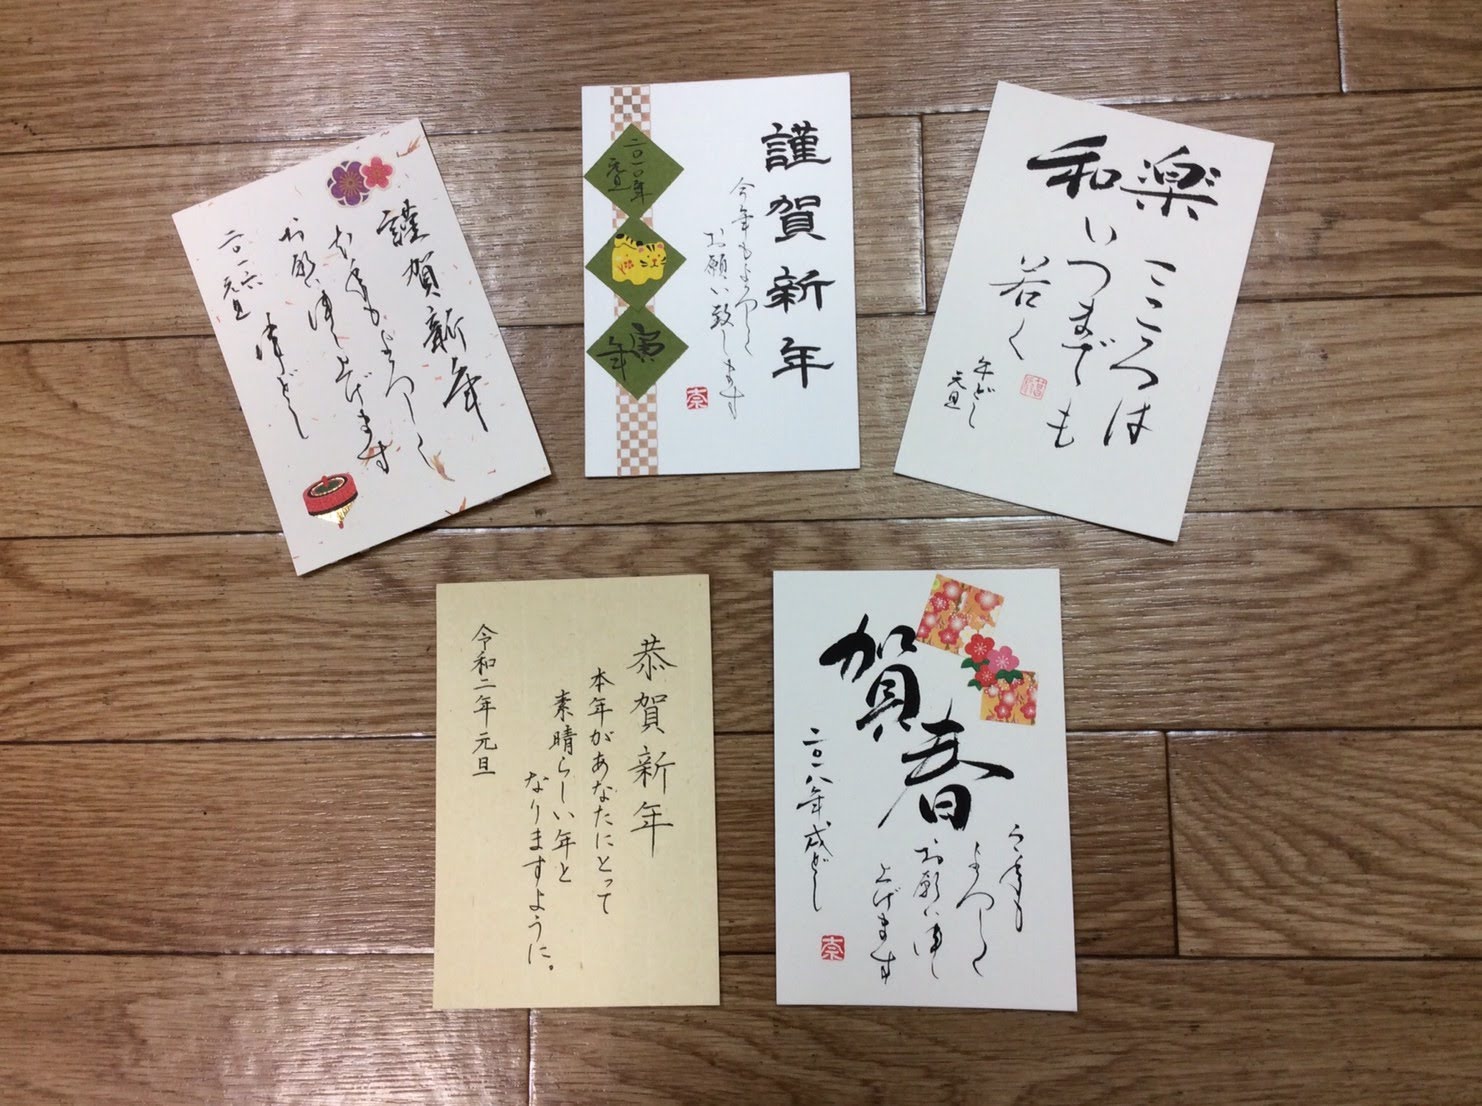 謹賀新年
本年もよろしく
お願い申し上げます
二〇一六 申どし
元旦
謹賀新年
今年もよろしく
お願い致します
二〇一〇年
元旦
寅
年
楽 こころは
和 いつまでも
若く
午どし
元旦
恭賀新年
本年があなたにとって
素晴らしい年と
なりますように。
令和二年 元旦
賀春
今年も
よろしく
お願い申し
上げます
二〇一八年戌どし